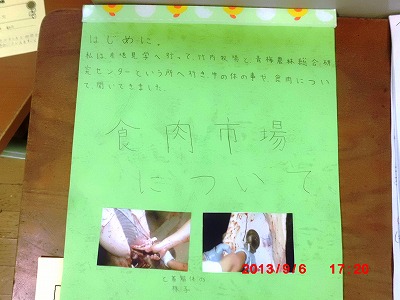 はじめに。
私は、市場見学へ行って、竹内牧場と青梅農林総合研
究センターという所へ行き、牛の体の事や、食肉につい
て、聞いてきました。
食肉市場
について
様子
2013/9/6 17:20